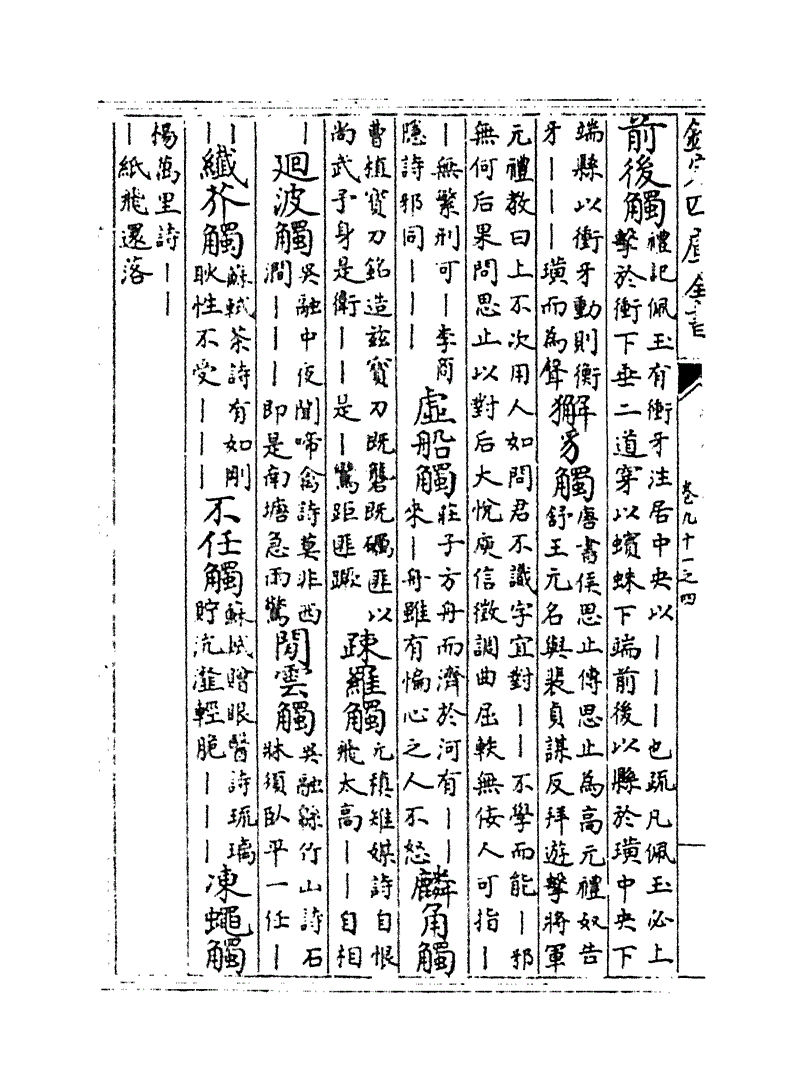 欽定四庫全書
卷九十一之四
前後觸禮記佩玉有衝牙注居中央以｜｜｜也疏凡佩玉必上
擊於衝下垂二道穿以蠙蛛下端前後以縣於璜中央下
端縣以衝牙動則衝
牙｜｜｜璜而為聲獬豸觸唐書侯思止傳思止為高元禮奴告
舒王元名與裴貞謀反拜遊擊將軍
元禮教曰上不次用人如問君不識字宜對｜｜不學而能｜邪
無何后果問思止以對后大悅庾信徵調曲屈軼無佞人可指｜
｜無繁刑可｜李商
隱詩邪同｜｜｜虛船觸莊子方舟而濟於河有｜｜
來｜舟雖有惼心之人不怒麟角觸
曹植寶刀銘造兹寳刀既礱既礪匪以
尚武予身是衛｜｜是｜驚距匪蹶疎羅觸元稹雉媒詩自恨
飛太高｜｜自相
｜廻波觸吳融中夜聞啼禽詩莫非西
澗｜｜｜即是南塘急雨驚閒雲觸吳融綿竹山詩石
牀須臥平一任｜
｜｜纎芥觸蘇軾茶詩有如剛
耿性不受｜｜｜不任觸蘇軾贈眼醫詩琉璃
貯沆瀣輕脆｜｜｜凍蠅觸
楊萬里詩｜｜
｜紙飛還落